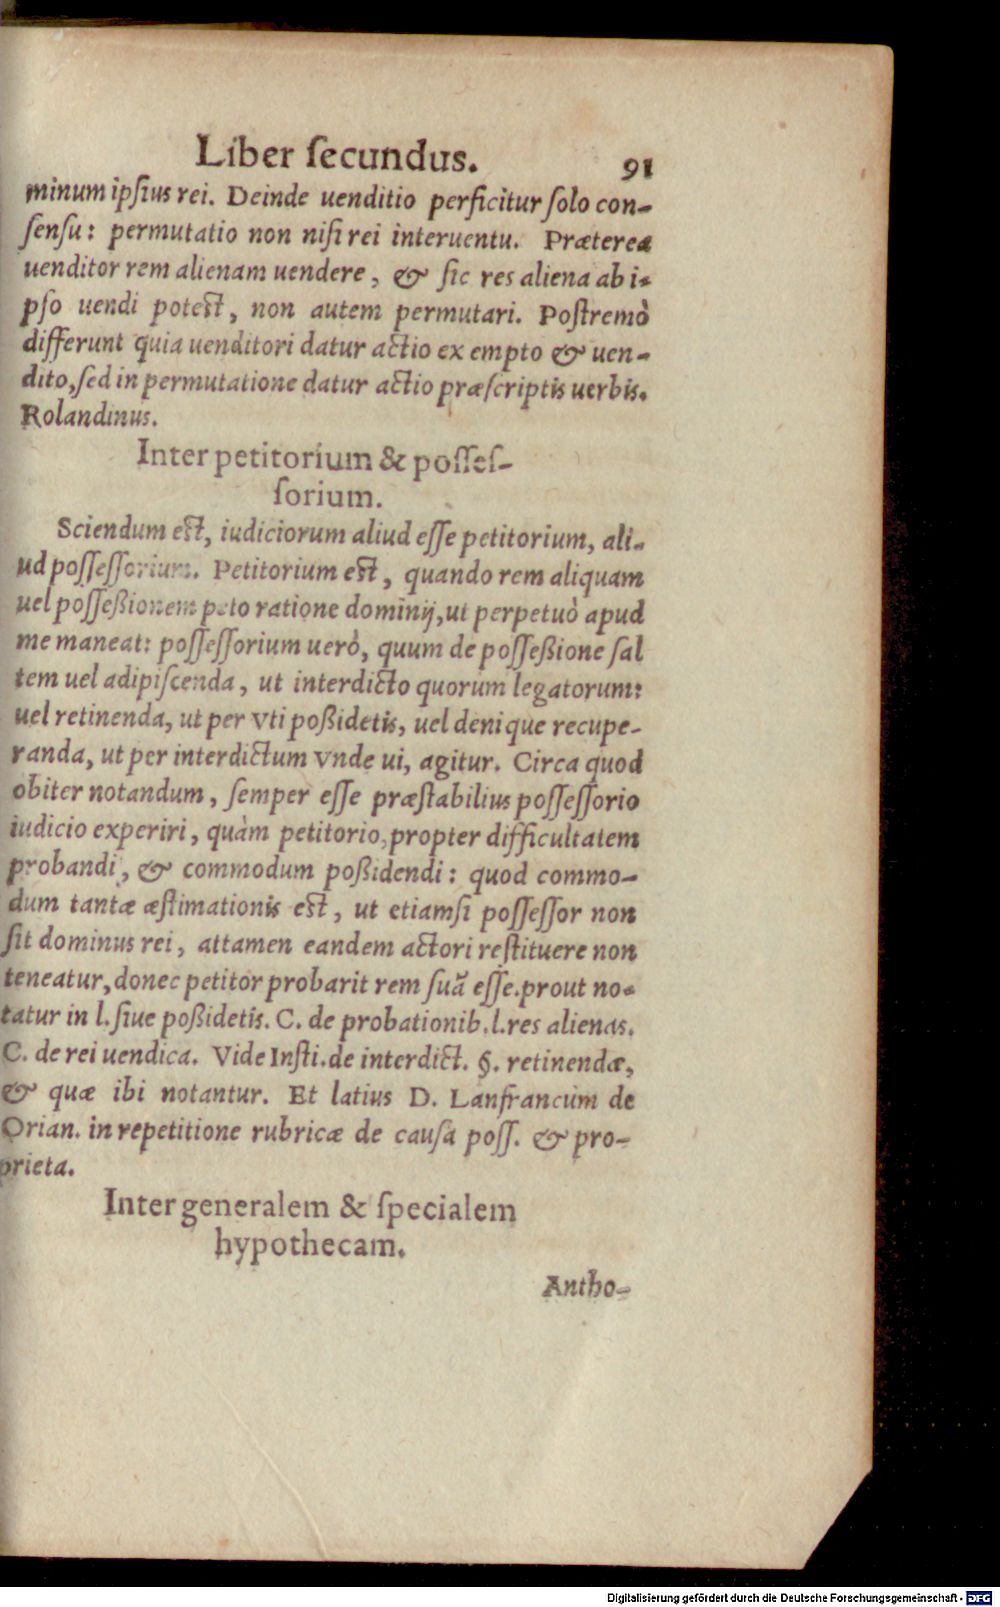 Liber ſecundus. 91
minum ipſius rei. Deinde uenditio perficitur ſolo con-
ſenſu: permutatio non niſi rei interuentu. Præterea
uenditor rem alienam uendere, & ſic res aliena ab i-
pſo uendi poteſt, non autem permutari. Poſtremò
differunt quia uenditori datur actio ex empto & uen-
dito, ſed in permutatione datur actio præſcriptis uerbis.
Rolandinus.
Inter petitorium & poſſeſ-
ſorium.
Sciendum eſt, iudiciorum aliud eſſe petitorium, ali-
ud poſſeſſorium. Petitorium eſt, quando rem aliquam
uel poſſeßionem peto ratione dominij, ut perpetuò apud
me maneat: poſſeſſorium uerò, quum de poſſeßione ſal
tem uel adipiſcenda, ut interdicto quorum legatorum:
uel retinenda, ut per vti poßidetis, uel denique recupe-
randa, ut per interdictum vnde ui, agitur. Circa quod
obiter notandum, ſemper eſſe præſtabilius poſſeſſorio
iudicio experiri, quàm petitorio, propter difficultatem
probandi, & commodum poßidendi: quod commo-
dum tantæ æſtimationis eſt, ut etiamſi poſſeſſor non
ſit dominus rei, attamen eandem actori reſtituere non
teneatur, donec petitor probarit rem ſuã eſſe. prout no-
tatur in l. ſiue poßidetis. C. de probationib. l. res alienas.
C. de rei uendica. Vide Inſti. de interdict. §. retinendæ,
& quæ ibi notantur. Et latius D. Lanfrancum de
Orian. in repetitione rubricæ de cauſa poſſ. & pro-
prieta.
Inter generalem & ſpecialem
hypothecam.
Antho-
Digitalisierung gefördert durch die Deutsche Forschungsgemeinschaft - DFG